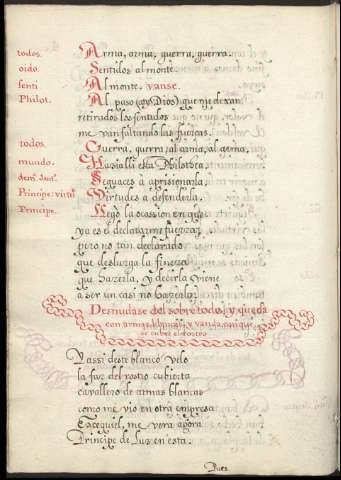 todos. Arma, arma, guerra, guerra.
oido. Sentidos al monte
senti Al monte. vanse.
Philot. Al paso (ay Dios) que me dexan
retirados los sentidos
me van faltando las fuerças.
todos. Guerra, guerra, al arma, al arma,
mundo. Hazia alli esta Philothea,
Sequaces à aprisionarla,
Principe. virtu Virtudes a defenderla.
Principe. Llegò la ocassion en que
ya es el declararme fuerza;
pero no tan declarado
que desluzga la fineza
que hazerla, y decirla viene
a ser un casi no hazerla:
Desnudase del sobre todo, y queda
con armas blancas, y vanda, con que
se cubre el rostro
Y assi deste blanco velo
la faz del rostro cubierta
cavallero de armas blancas
como me vio en otra empresa
Ezequiel, me vera agora
Principe de Luz en esta.
Pues